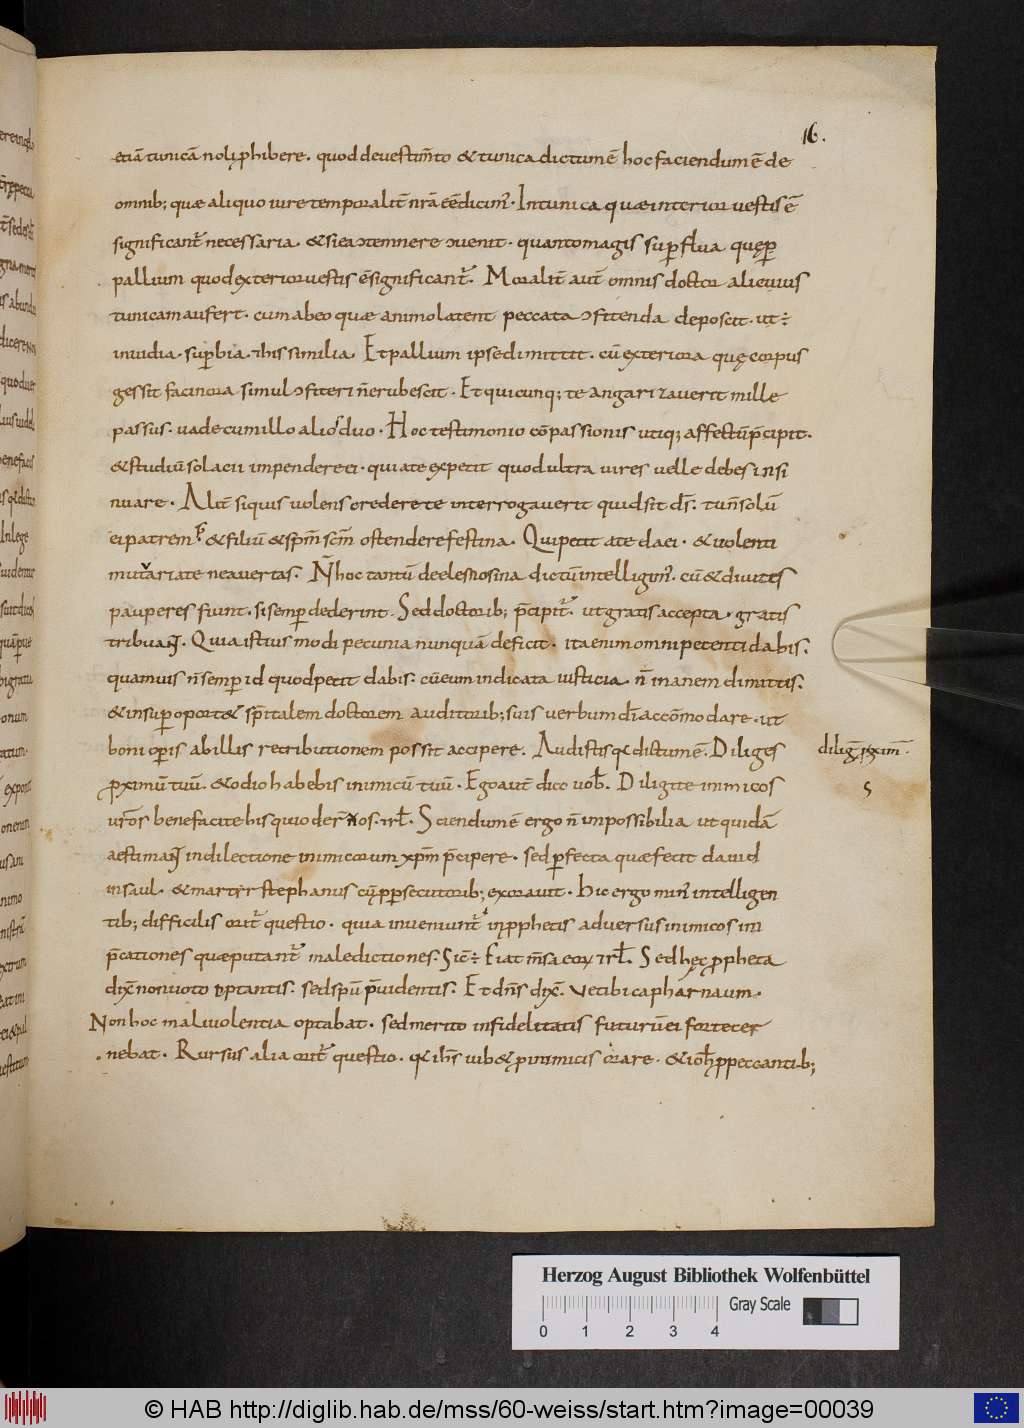 16.
etiā tunicā noli ꝓhibere. quod de vestim̄to & tunica dictum ē hoc faciendum ē de
omnib; quæ aliquo iure temporalit̄ nr̄a eē dicim᷒. In tunica quæ interior vestis ē
significant᷒ necessaria. & si ea ɔtemnere ɔuenit. quanto magis suꝑflua quę ꝑ
pallium quod exterior vestis ē significant᷒. Moralit̄ aut̄ omnis doctor alicuius
tunicam aufert. cum ab eo quæ animo latent peccata ɔfitenda deposcit. ut ÷
inuidia. suꝑbia. ⁊ his similia. Et pallium ipse dimittit. cū exteriora quę corpus
gessit facinora simul ɔfiteri n̄ erubescit. Et quicunq; te angarizaverit mille
passus. uade cum illo alio duo. Hoc testimonio cōpassionis utiq; affectū p̄cipit.
& studiū solacii impendere ei. qui a te expetit quod ultra uires uelle debes insi
nuare. Alit̄ si quis uolens credere te interrogaverit quid sit dr̄s. tu n̄ solū
ei patrem & filiū & sp̄m sc̄m ostendere festina. Qui petit a te da ei. & uolenti
mutuari a te ne avertas. N̄ hoc tantū de elemosina dictū intelligim᷒. cū & diuites
pauperes fiunt. si semꝑ dederint. Sed doctorib; p̄cipit᷒. ut gratis accepta. gratis
tribuant. Quia istius modi pecunia nunquā deficit. ita enim omni petenti dabis.
quamuis n̄ semꝑ id quod petit dabis. cū eum indicata iusticia. n̄ inanem dimittis.
& insuꝑ oport& sp̄italem doctorem auditorib; suis uerbum dī accōmodare. ut
boni oꝑis ab illis retributionem possit accipere. Audistis qđ dictum ē. Diliges
ꝓximū tuū. & odio habebis inimicū tuū. Ego aut̄ dico uob̄. Diligite inimicos
ur̄os benefacite his qui oder̄ uos. ⁊rł. Sciendum ē ergo n̄ inpossibilia ut quidā
aestimant in dilectione inimicorum xp̄m p̄cipere. sed ꝑfecta quæ fecit dauid
in saul. & martẏr stephanus cū ꝓ ꝑsecutorib; exorauit. hic ergo min᷒ intelligen
tib; difficilis orit᷒ questio. quia inveniunt᷒ in ꝓphetis adversus inimicos im
p̄cationes quæ putant᷒ maledictiones. Sic ÷ Fiat m̄sa eorꝝ ⁊rł. Sed hęc ꝓpheta
dix̄ non uoto optantis. sed spū p̄uidentis. Et dn̄s dix̄. Vę tibi capharnaum.
Non hoc malivolentia optabat. sed merito infidelitatis futurū ei fore cer
nebat. Rursus alia orit᷒ questio. qđ ih̄s iub& ꝓ inimicis orare. & ioh̄ ꝓ peccantib;
diliḡ ꝓxim̄.
5
Herzog August Bibliothek Wolfenbüttel
Gray Scale
0 1 2 3 4
© HAB http://diglib.hab.de/mss/60-weiss/start.htm?image=00039